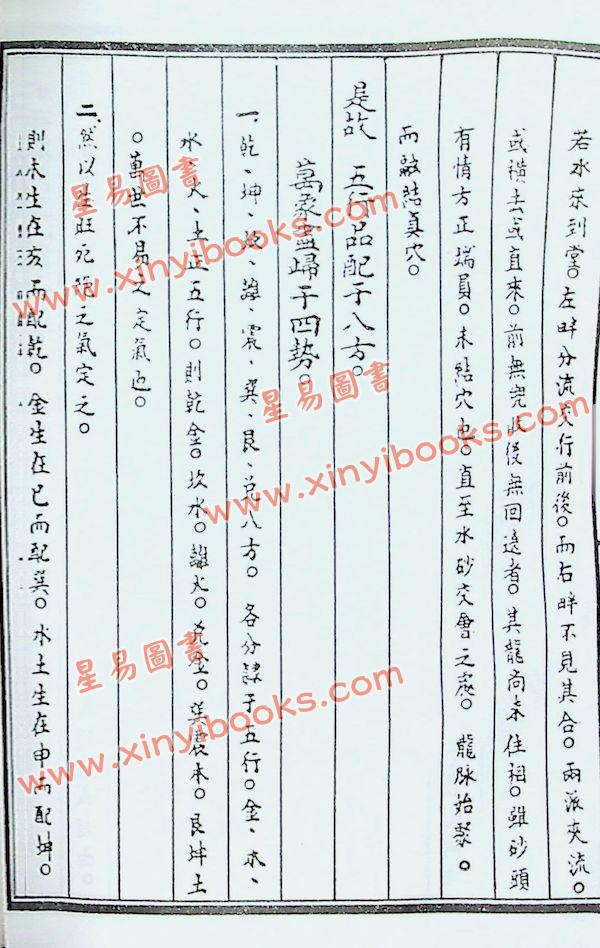 若水來到堂。左畔分流交行前後。而右畔不見其合。兩派夾流。
或横去或直來。前無完收後無回遶者。其龍尚未住相。雖砂頭
有情方正端員。未結穴也。直至水砂交會之處。龍脉始聚。
而融結真穴。
是故 五行品配于八方。
萬象盡歸于四勢。
一、乾、坤、坎、離、震、巽、艮、兌八方。各分隸于五行。金、木、
水、火、土正五行。則乾金。坎水。離火。兌金。巽震木。艮坤土
。萬世不易之定氣也。
二、然以生旺死絕之氣定之。
則木生在亥而配乾。金生在巳而配巽。水土生在申而配坤。
星易圖書
www.xinyibooks.com
星易圖書
www.xinyibooks.com
星易圖書
www.xinyibooks.com